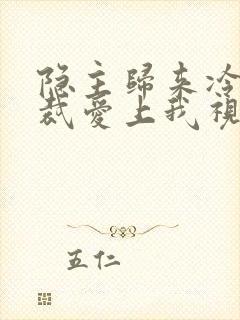 隐主歸来冷
裁愛上我視
五仁